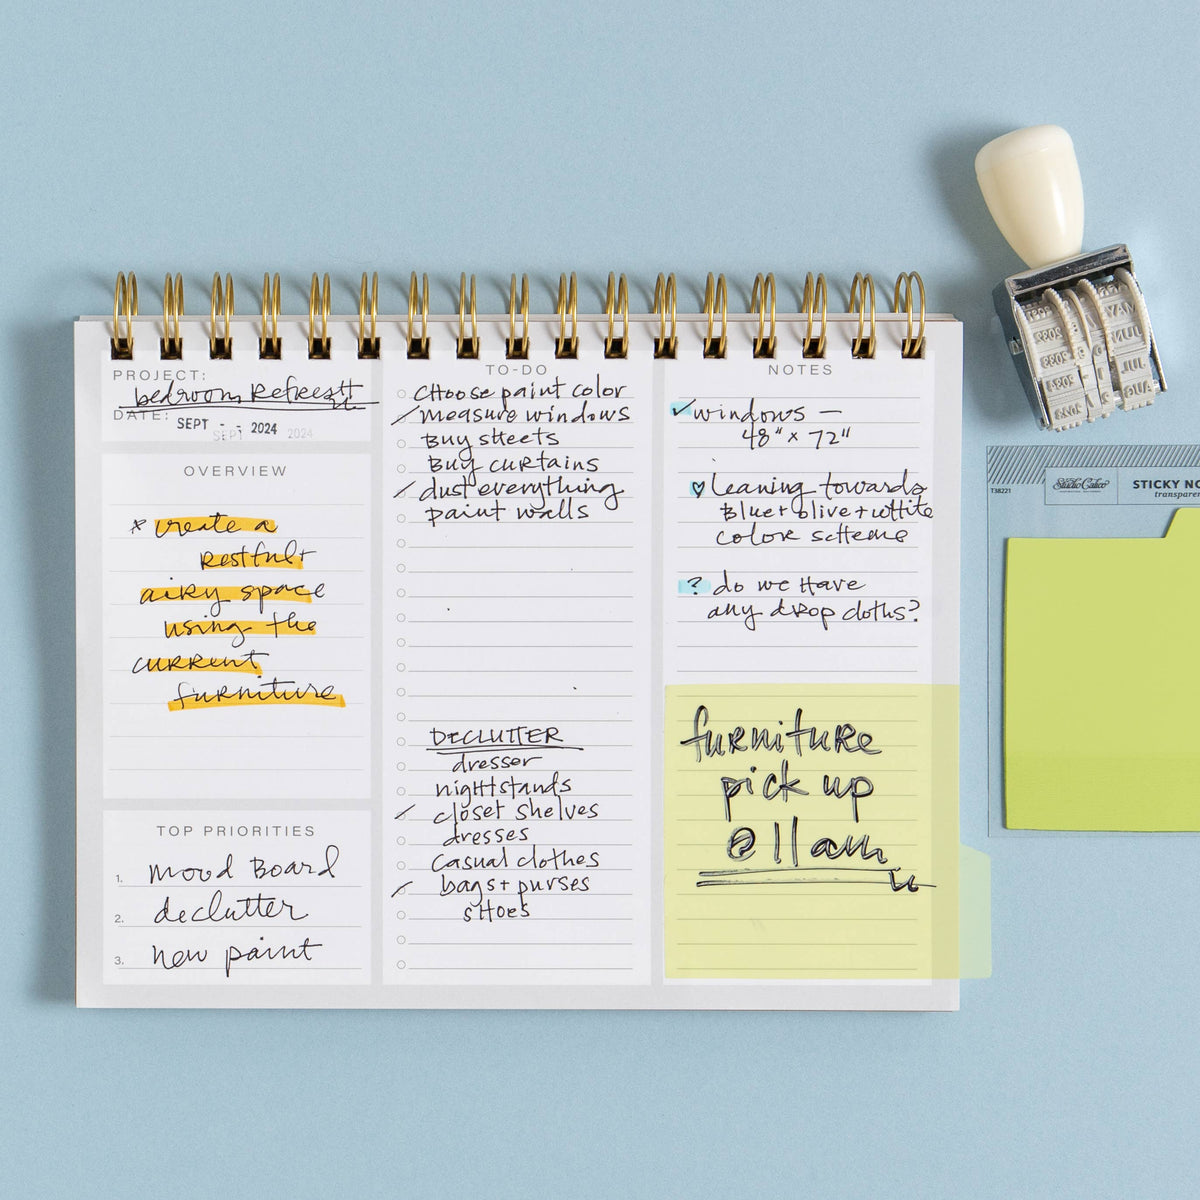 PROJECT:
bedroom Refresh
DATE:
SEPT - - 2024
SEPT 2024
OVERVIEW
* create a
Restful +
airy space
using the
current
furniture
TOP PRIORITIES
1. mood Board
2. declutter
3. new paint
TO-DO
choose paint color
measure windows
Buy sheets
Buy curtains
dust everything
paint walls
DECLUTTER
dresser
nightstands
closet shelves
dresses
casual clothes
bags + purses
shoes
NOTES
✓ windows —
48" x 72"
♡ leaning towards
Blue + olive + white
color scheme
? do we have
any drop cloths?
furniture
pick up
@ 11 am
T38221
Studio Calico
STICKY NO
transparen
JUL